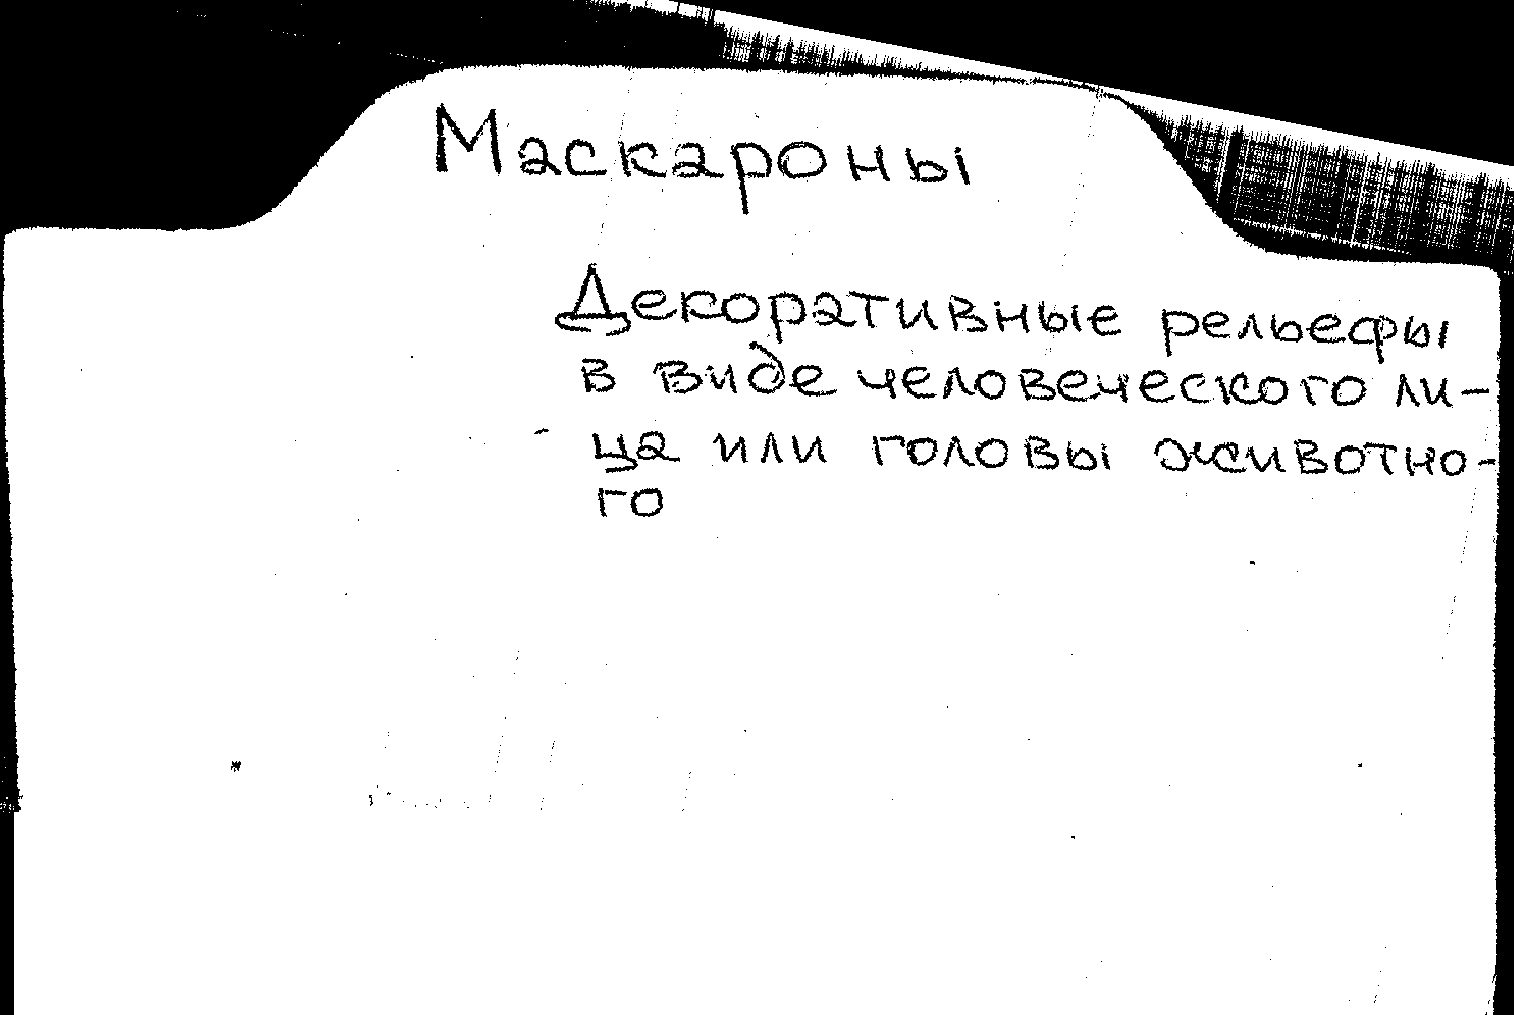 Маскароны
Декоративные рельефы
в виде человеческого ли-
ца или головы животно-
го